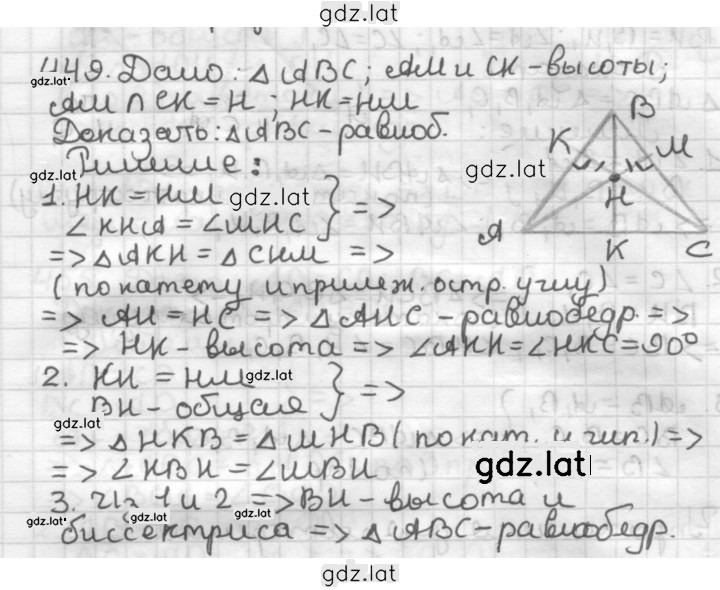 gdz.lat
449. Дано: △ABC; AM и CK - высоты;
gdz.lat
AM ∩ CK = H; HK = HM
Доказать: △ABC - равноб.
gdz.lat
Решение:
1. HK = HM gdz.lat
∠KHA = ∠MHC } =>
=> △AKH = △CHM =>
(по катету и прилеж. остр. углу)
=> AH = HC => △AHC - равнобедр. =>
=> HK - высота => ∠AKH = ∠HKC = 90°
2. KH = HM gdz.lat
BH - общая } =>
gdz.lat
=> △HKB = △MHB (по кат. и гип.) =>
=> ∠KBH = ∠MBH
gdz.lat
3. Из 1 и 2 => BH - высота и
gdz.lat gdz.lat gdz.lat
биссектриса => △ABC - равнобедр.
B
K
M
gdz.lat
H
A
K
C
gdz.lat